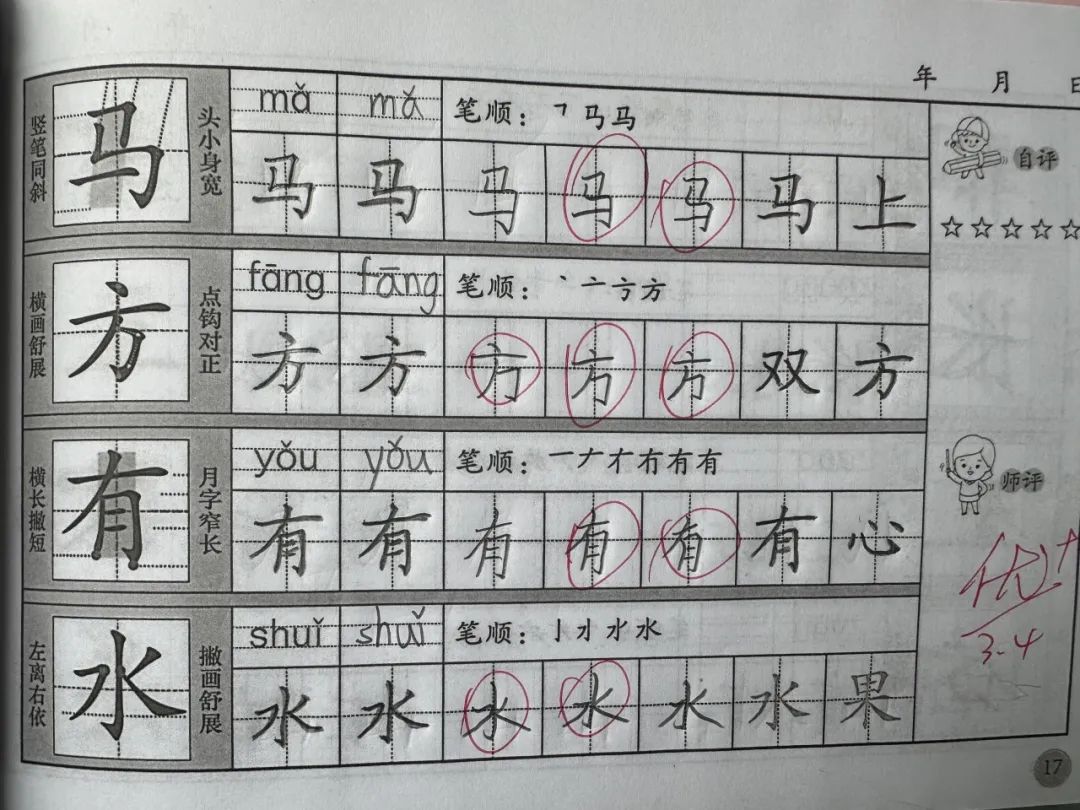 年 月 日
竖笔同斜 马 头小身宽 mǎ mǎ 笔顺：㇕马马
马 马 马 马 马 马 上
自评
☆☆☆☆☆
横画舒展 方 点钩对正 fāng fāng 笔顺：丶亠方方
方 方 方 方 方 双 方
横长撇短 有 月字窄长 yǒu yǒu 笔顺：一ナ冇有有
有 有 有 有 有 有 心
师评
优+
3-4
左离右依 水 撇画舒展 shuǐ shuǐ 笔顺：亅水水
水 水 水 水 水 水 果
17